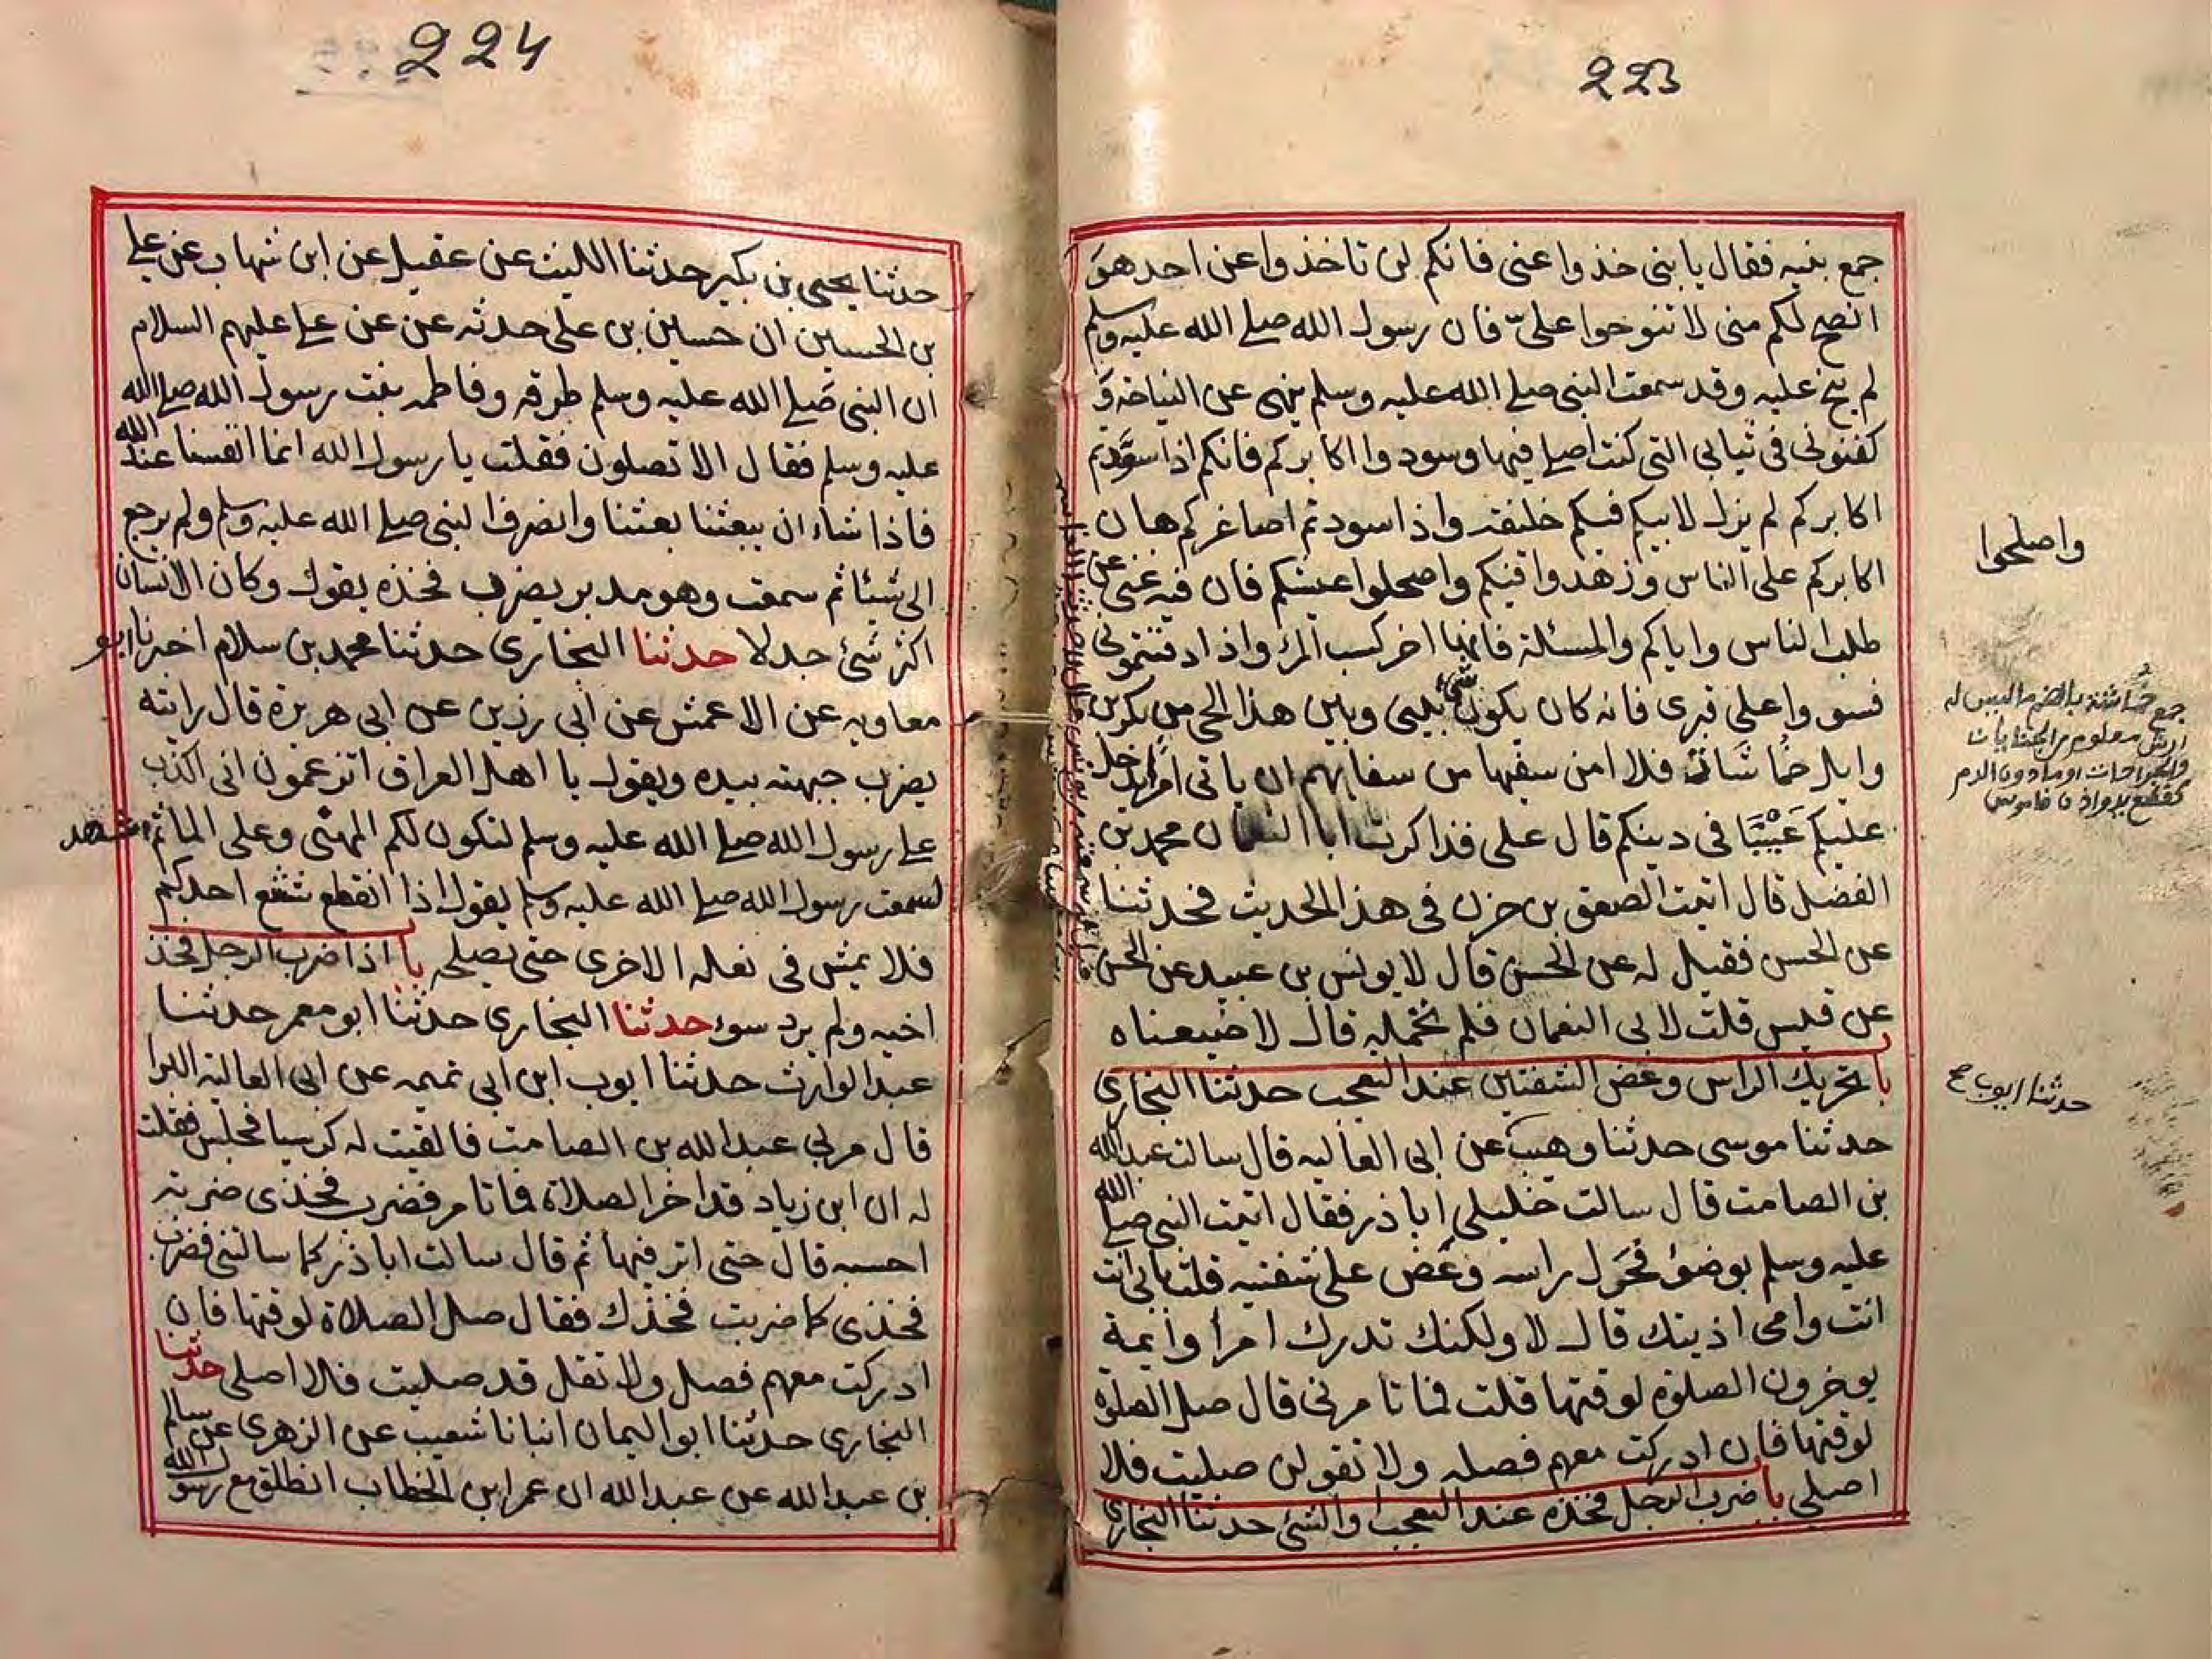 223
جمع بنيه فقال يا بنى خذوا عنى فانكم لن تاخذوا عن احد هو
انصح لكم منى لا تنوحوا علىّ فان رسول الله صلے الله عليه وسلم
لم ينح عليه وقد سمعت النبى صلے الله عليه وسلم ينهى عن النياحة و
كفنونى فى ثيابى التى كنت اصلے فيها وسودوا اكابركم فانكم اذا سوّدتم
اكابركم لم يزل لابيكم فيكم خليفة واذا سودتم اصاغركم هان
اكابركم على الناس وزهدوا فيكم واصحلوا عيشكم فان فيه غنى عن
طلب الناس واياكم والمسئلة فانها اخر كسب المرء واذا دفنتمونى
فسووا على قبرى فانه كان يكون شئ بينى وبين هذا الحى من بكر بن
وايل خماشات فلا امن سفيها من سفايهم ان ياتى امرا يدخل
عليكم عَيْبًا فى دينكم قال على فذاكرت ابا النعمان محمد بن
الفضل قال اتيت الصعق بن حزن فى هذا الحديث فحدثنا
عن الحسن فقيل له عن الحسن قال لا يونس بن عبيد عن الحسن
عن قيس قلت لابى النعمان فلم تحمله قال لا ضيعناه
با تحريك الراس وعض الشفتين عند التعجب حدثنا البخارى
حدثنا موسى حدثنا وهيب عن ابى العاليه قال سالت عبد الله
بن الصامت قال سالت خليلى ابا ذر فقال اتيت النبى صلے الله
عليه وسلم بوضؤ فحرك راسه وعض على شفتيه قلت بابى انت
انت وامى اذيتك قال لا ولكنك تدرك امرأ وايمة
يوخرون الصلوة لوقتها قلت فما تامرنى قال صل الصلوة
لوقتها فان ادركت معهم فصله ولا تقولن صليت فلا
اصلى با ضرب الرجل فخذه عند التعجب والشئ حدثنا البخارى
واصلحوا
جمع خماشة بالضم ما ليس له
ارش معلوم من الجنايات
والجراحات او ما دون الدم
كقطع يد واذن قاموس
حدثنا ايوب صح
224
حدثنا يحيى بن بكير حدثنا الليث عن عقيل عن ابن شهاب عن علے
بن الحسين ان حسين بن على حدثه عن عن علے عليهم السلام
ان النبى صلے الله عليه وسلم طرقه وفاطمه بنت رسول الله صلے الله
عليه وسلم فقال الا تصلون فقلت يا رسول الله انما انفسنا عند الله
فاذا شاء ان يبعثنا بعثنا وانصرف النبى صلے الله عليه وسلم ولم يرجع
الى شيئا ثم سمعت وهو مدبر يضرب فخذه يقول وكان الانسان
اكثر شئ جدلا حدثنا البخارى حدثنا محمد بن سلام اخبرنا ابو
معاويه عن الاعمش عن ابى رزين عن ابى هريرة قال رايته
يضرب جبهته بيده ويقول يا اهل العراق اتزعمون انى اكذب
علے رسول الله صلے الله عليه وسلم لتكون لكم المهنى وعلى الماثم اشهد
لسمعت رسول الله صلے الله عليه وسلم يقول اذا انقطع شسع احدكم
فلا يمش فى نعله الاخرى حتى يصلحه با اذا ضرب الرجل فخذ
اخيه ولم يرد سوء حدثنا البخارى حدثنا ابو معمر حدثنا
عبد الوارث حدثنا ايوب ابن ابى تميمه عن ابى العالية البرا
قال مر بى عبد الله بن الصامت فالقيت له كرسيا فجلس فقلت
له ان ابن زياد قد اخر الصلاة فما تامر فضرب فخذى ضربة
احسبه قال حتى اثر فيها ثم قال سالت ابا ذر كما سالتنى فضرب
فخذى كما ضربت فخذك فقال صل الصلاة لوقتها فان
ادركت معهم فصل ولا تقل قد صليت فلا اصلى حدثنا
البخارى حدثنا ابو اليمان انبانا شعيب عن الزهرى عن سالم
بن عبد الله عن عبد الله ان عمر ابن الخطاب انطلق مع رسول الله